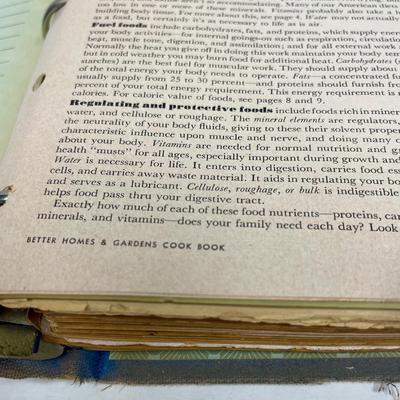 too low in one or more of these minerals. Vitamins probably also take a
building body tissue. For more about these, see page 4. Water may not actually
as a food, but certainly it's as necessary to life as air is.
Fuel foods include carbohydrates, fats, and proteins, which supply ener
your body activities—for internal goings-on such as respiration, circulation
beat, muscle tone, digestion, and assimilation; and for all external work
Normally the heat you give off in doing this work maintains your body tem
but in cold weather you may burn food for additional heat. Carbohydrates
starches) are the best fuel for muscular work. They should supply about
of the total energy your body needs to operate. Fats—a concentrated fu
usually supply from 25 to 30 percent—and proteins should furnish fro
percent of your total energy requirement. This energy requirement is m
calories. For calorie value of foods, see pages 8 and 9.
Regulating and protective foods include foods rich in miner
water, and cellulose or roughage. The mineral elements are regulators,
the neutrality of your body fluids, giving to these their solvent proper
characteristic influence upon muscle and nerve, and doing many o
about your body. Vitamins are needed for normal nutrition and g
health "musts" for all ages, especially important during growth and
Water is necessary for life. It enters into digestion, carries food esse
cells, and carries away waste material. It aids in regulating your bo
and serves as a lubricant. Cellulose, roughage, or bulk is indigestible
helps food pass thru your digestive tract.
Exactly how much of each of these food nutrients—proteins, car
minerals, and vitamins—does your family need each day? Look
BETTER HOMES & GARDENS COOK BOOK